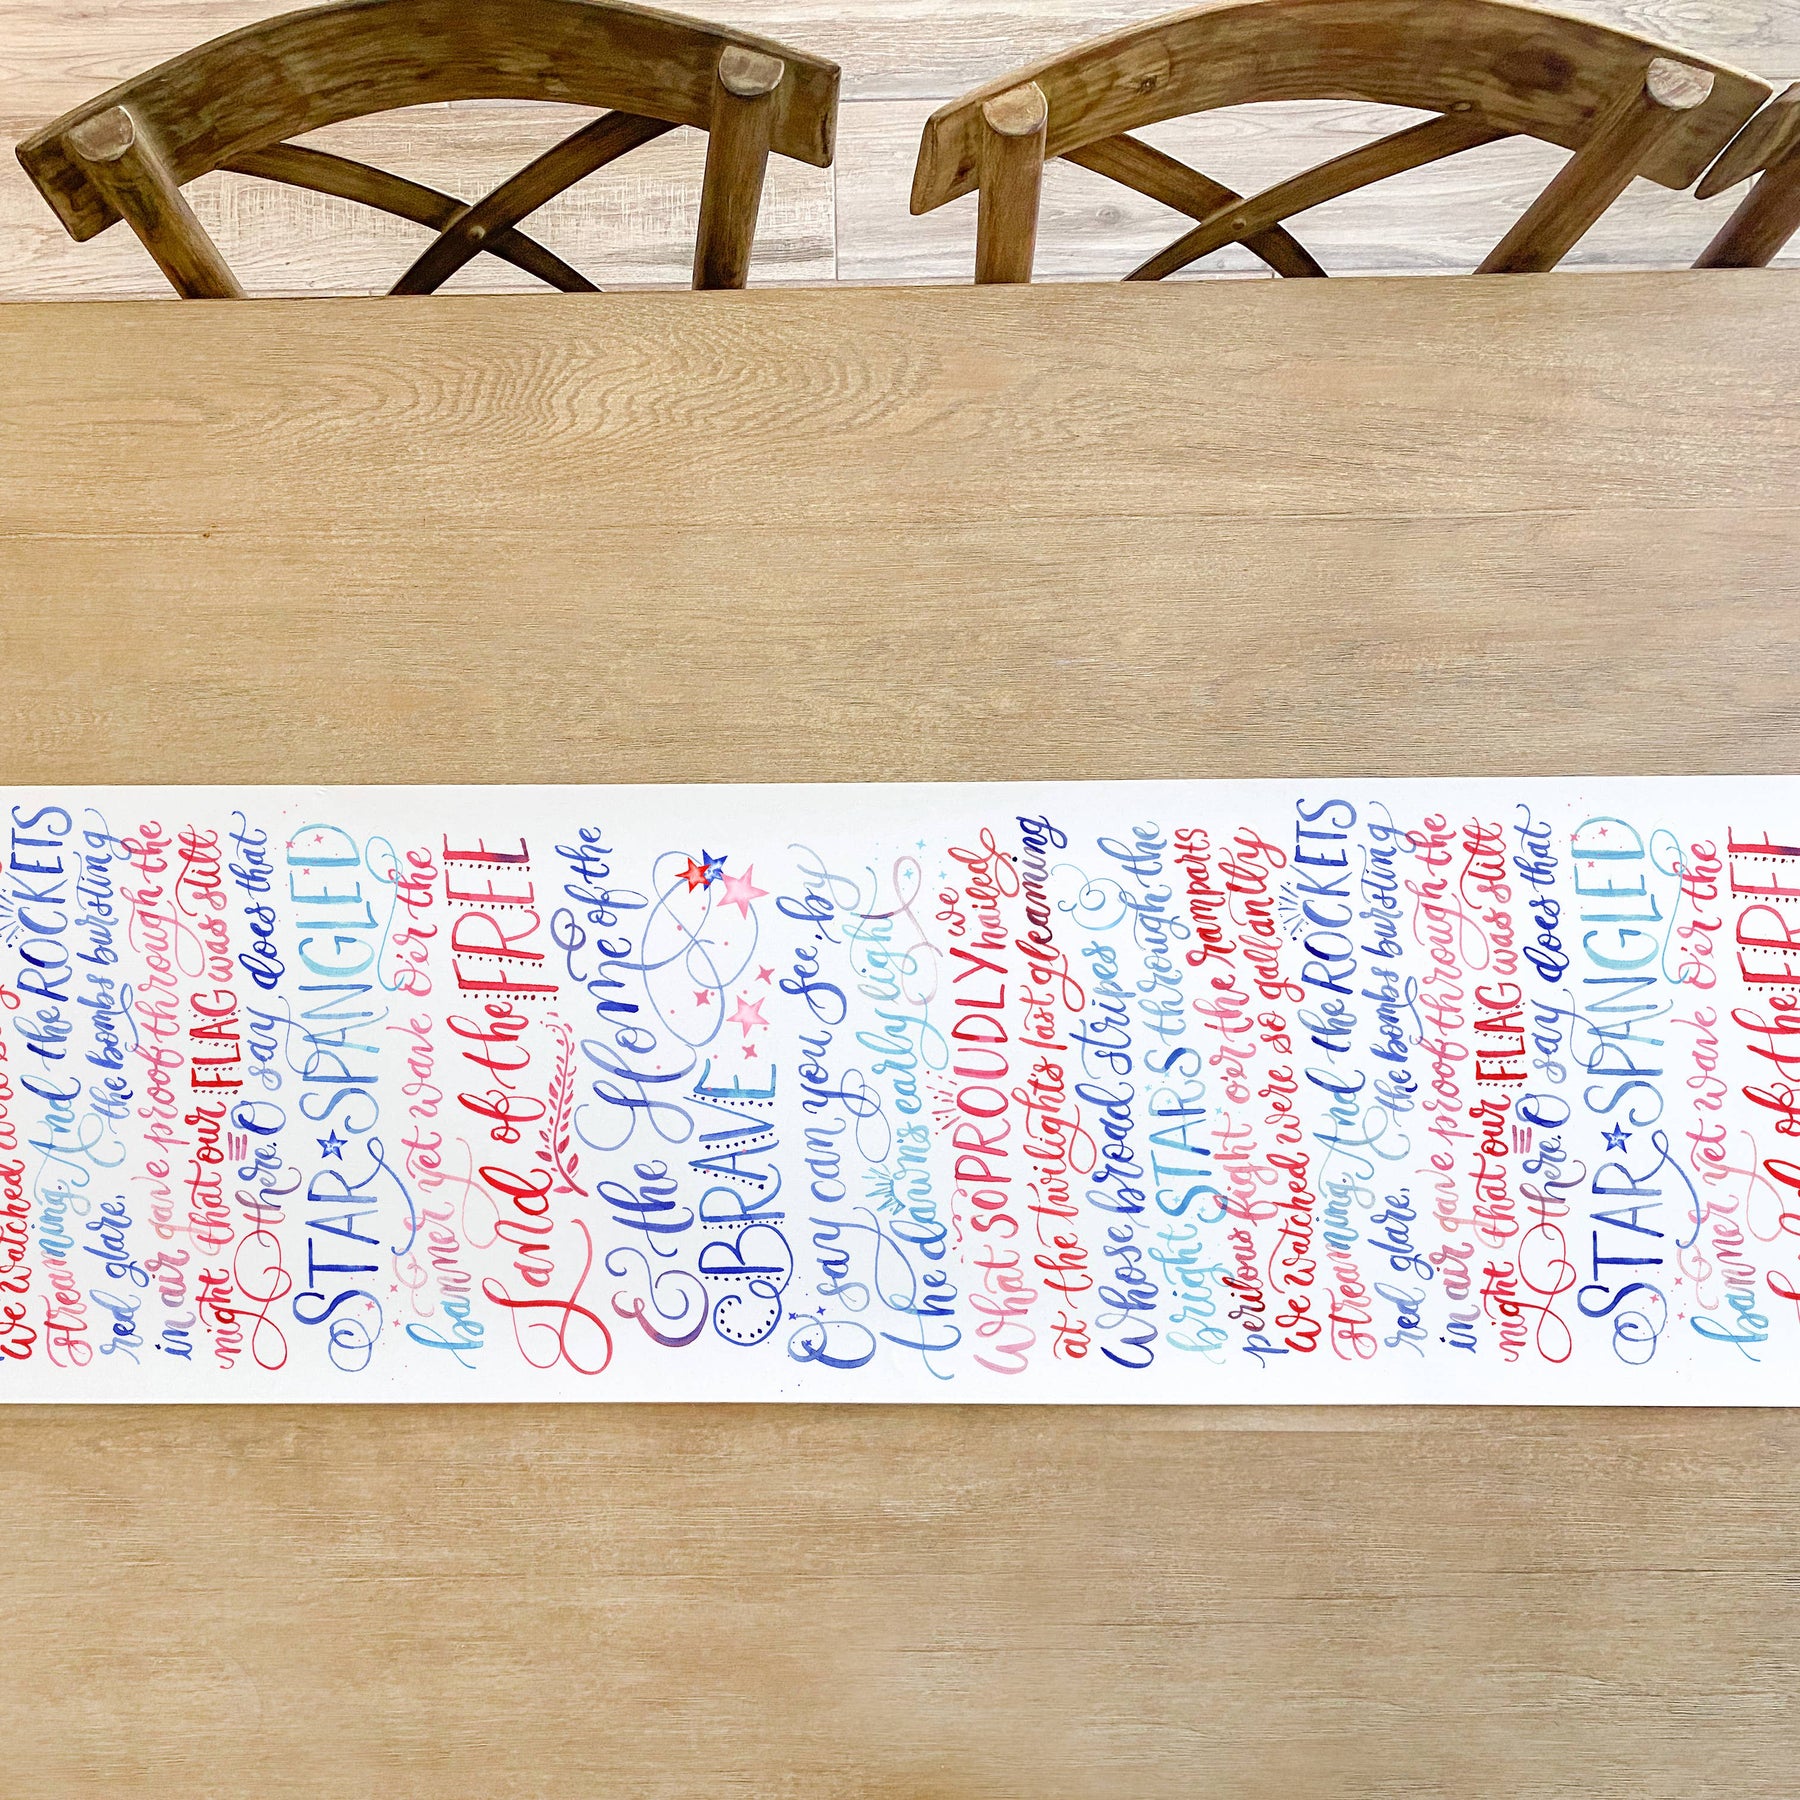 We watched were
streaming. And the ROCKETS
red glare, the bombs bursting
in air gave proof through the
night that our FLAG was still
there. O say does that
STAR SPANGLED
banner yet wave O'er the
Land of the FREE
& the Home of the
BRAVE
O say can you see, by
the dawn's early light
What so PROUDLY we hailed
at the twilight's last gleaming
Whose broad stripes &
bright STARS through the
perilous fight o'er the ramparts
We watched were so gallantly
streaming. And the ROCKETS
red glare, the bombs bursting
in air gave proof through the
night that our FLAG was still
there. O say does that
STAR SPANGLED
banner yet wave O'er the
Land of the FREE